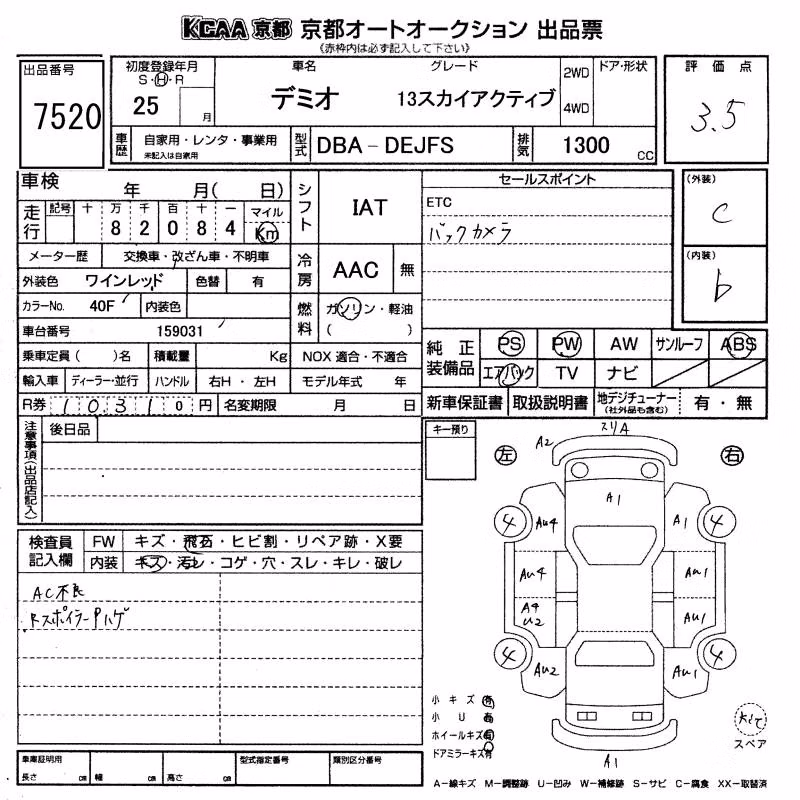 KCAA 京都 京都オートオークション 出品票
《赤枠内は必ず記入して下さい》
出品番号
7520
初度登録年月
S・H・R
25 月
車名
デミオ
グレード
13スカイアクティブ
2WD
4WD
ドア・形状
評価点
3.5
車歴
自家用・レンタ・事業用
未記入は自家用
型式
DBA-DEJFS
排気
1300 cc
車検 年 月( 日)
走行
記号 十 万 千 百 十 一 マイル
8 2 0 8 4 Km
メーター歴 交換車・改ざん車・不明車
外装色 ワインレッド 色替 有
カラーNo. 40F 内装色
車台番号 159031
乗車定員 ( )名 積載量 Kg
輸入車 ディーラー・並行 ハンドル 右H・左H
R券 10310円 名変期限 月 日
シフト IAT
冷房 AAC 無
燃料 ガソリン・軽油
( )
NOX 適合・不適合
モデル年式 年
セールスポイント
ETC
バックカメラ
(外装)
C
(内装)
b
純正装備品
PS PW AW サンルーフ ABS
エアバック TV ナビ
新車保証書 取扱説明書 地デジチューナー 有・無
(社外品も含む)
注意事項(出品店記入)
後日品
キー預り
検査員記入欄
FW キズ・飛石・ヒビ割・リペア跡・X要
内装 キズ・汚レ・コゲ・穴・スレ・キレ・破レ
AC不良
RスポイラーPハゲ
左
右
スリA
A2
A1
4
Au4
A1
4
Au4
Au1
A4
U2
Au1
4
Au2
Au1
4
A1
小キズ 有
小U 有
ホイールキズ 有
ドアミラーキズ 有
スペア
A―線キズ M―調整跡 U―凹み W―補修跡 S―サビ C―腐食 XX―取替済
車庫証明用
長さ cm 幅 cm 高さ cm
型式指定番号
類別区分番号